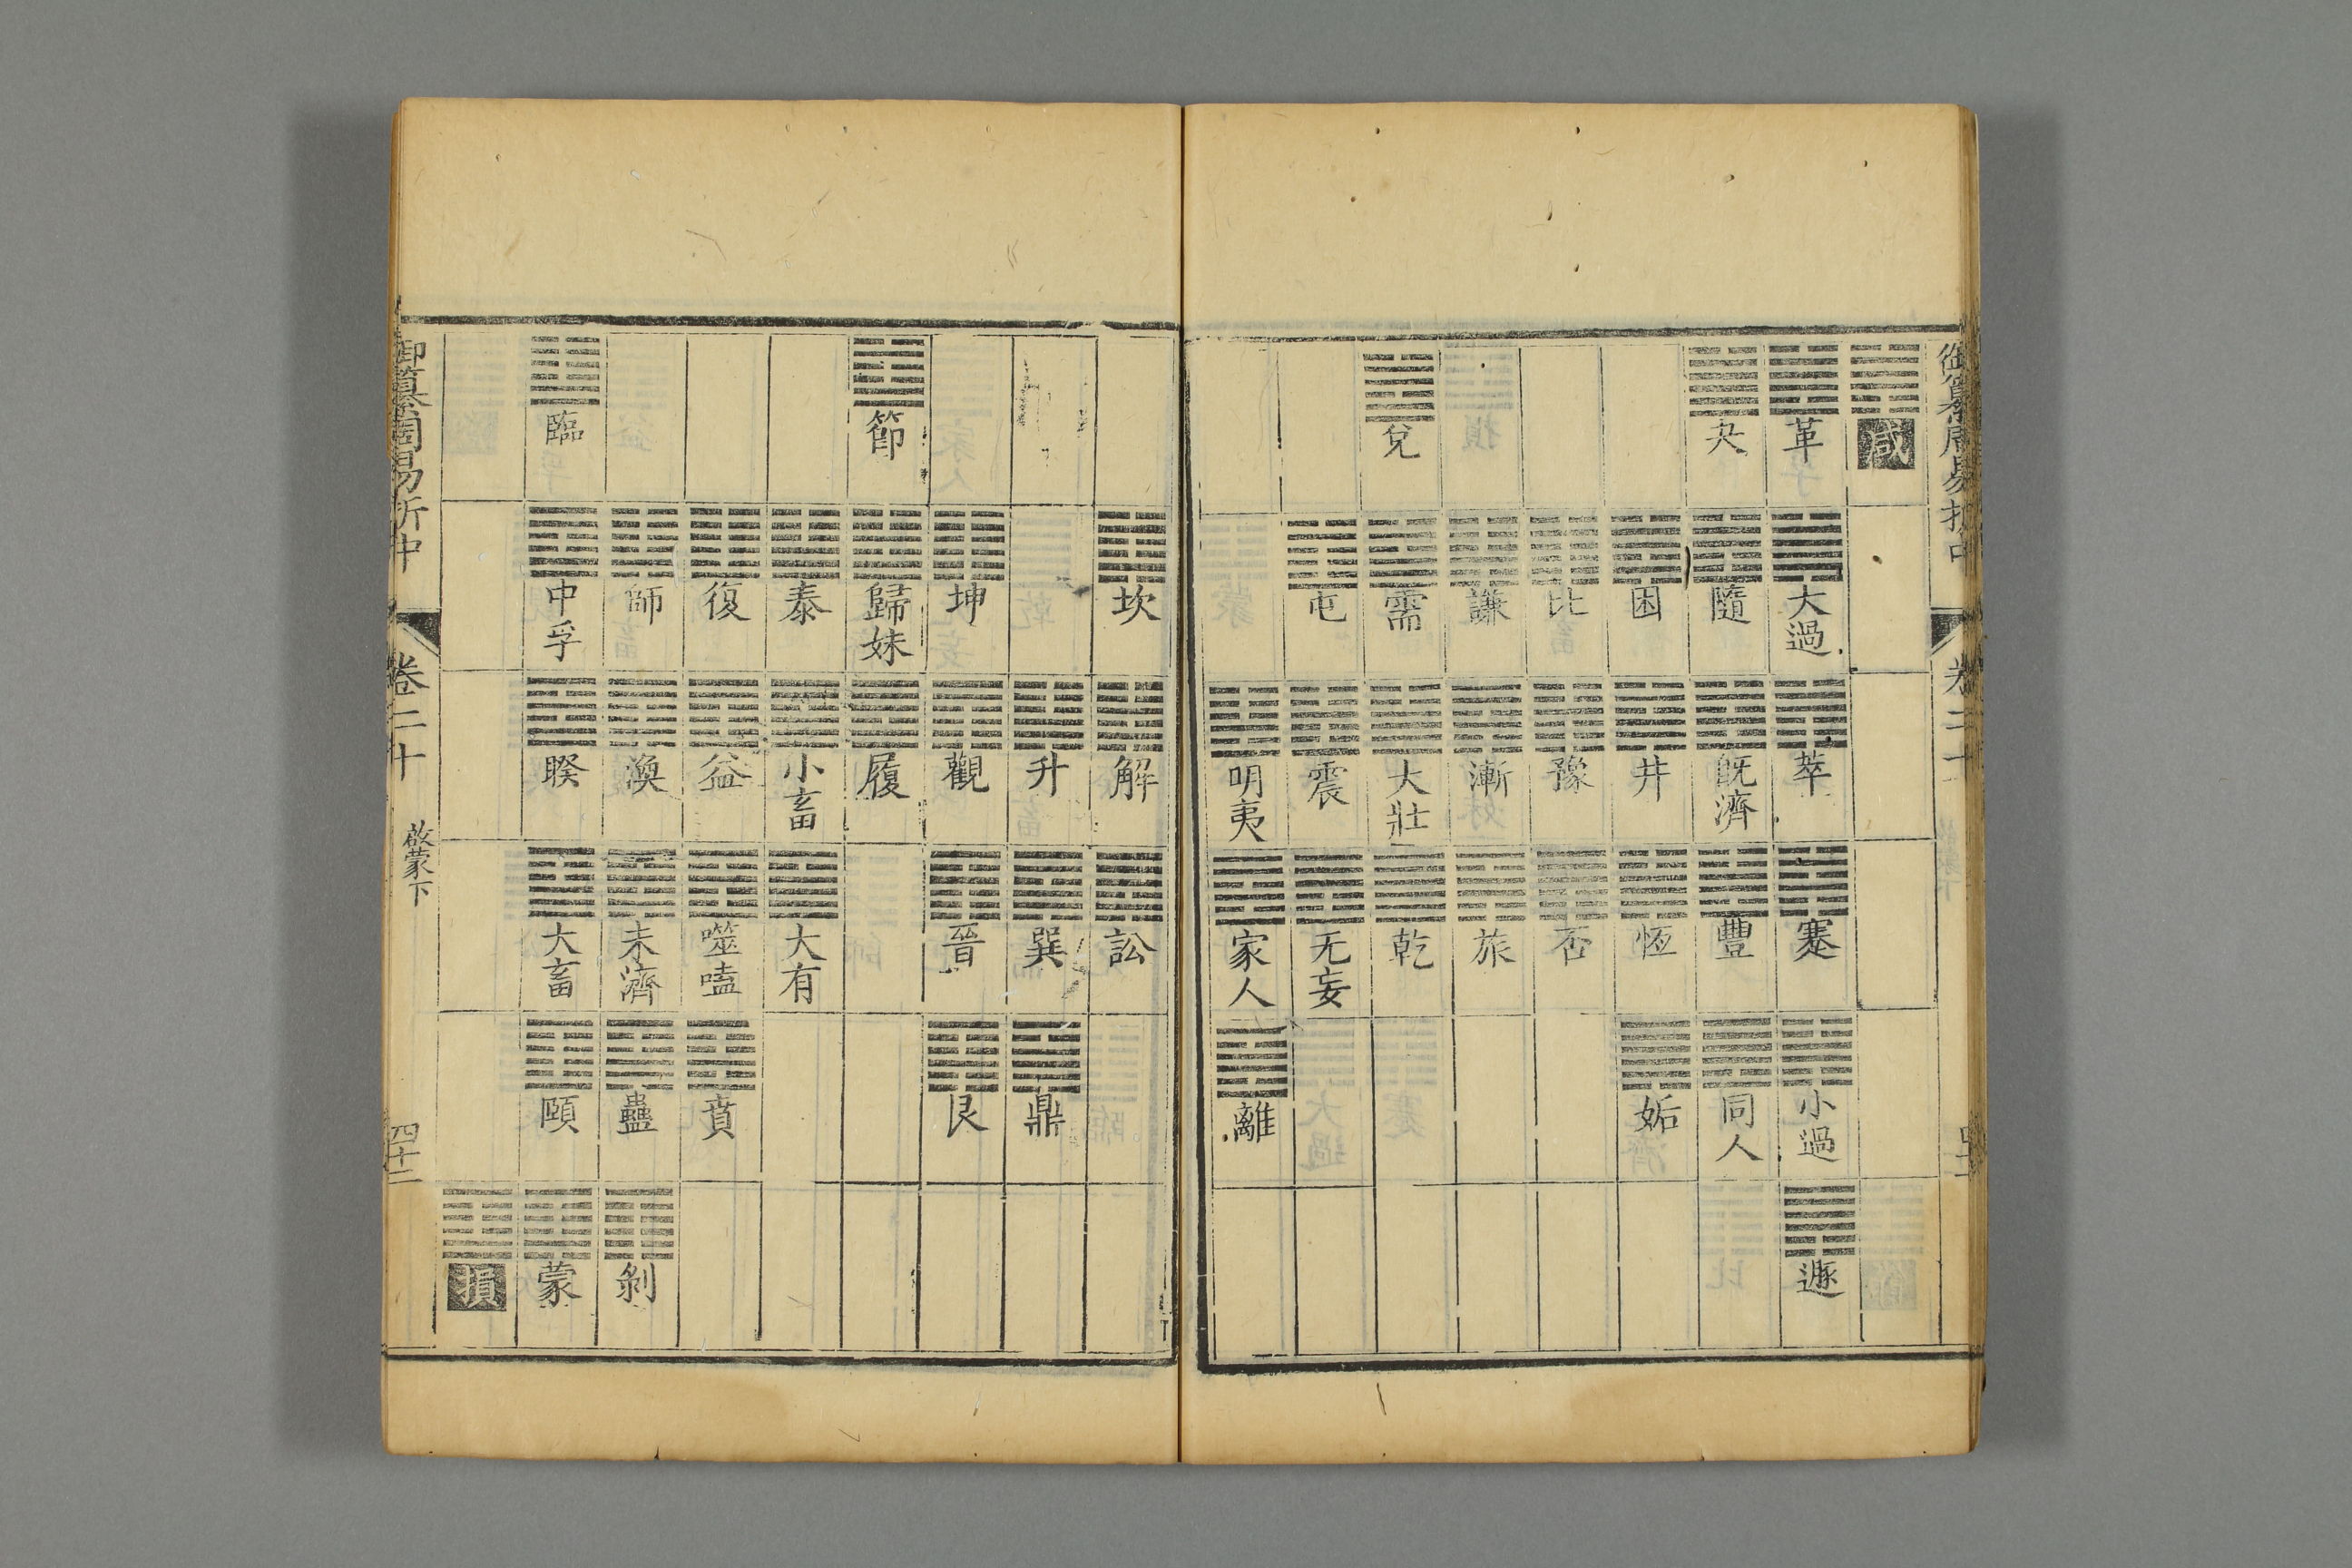 御纂周易折中
卷二十
咸
革 大過 萃 蹇 小過 遯
夬 隨 既濟 豐 同人
困 井 恆 姤
比 豫 否
謙 漸 旅
兌 需 大壯 乾
屯 震 无妄
明夷 家人 離
坎 解 訟
升 巽 鼎
坤 觀 晉 艮
節 歸妹 履
泰 小畜 大有
復 益 噬嗑 賁
師 渙 未濟 蠱 剝
臨 中孚 睽 大畜 頤 蒙
損
御纂周易折中
卷二十
啟蒙下
四十二